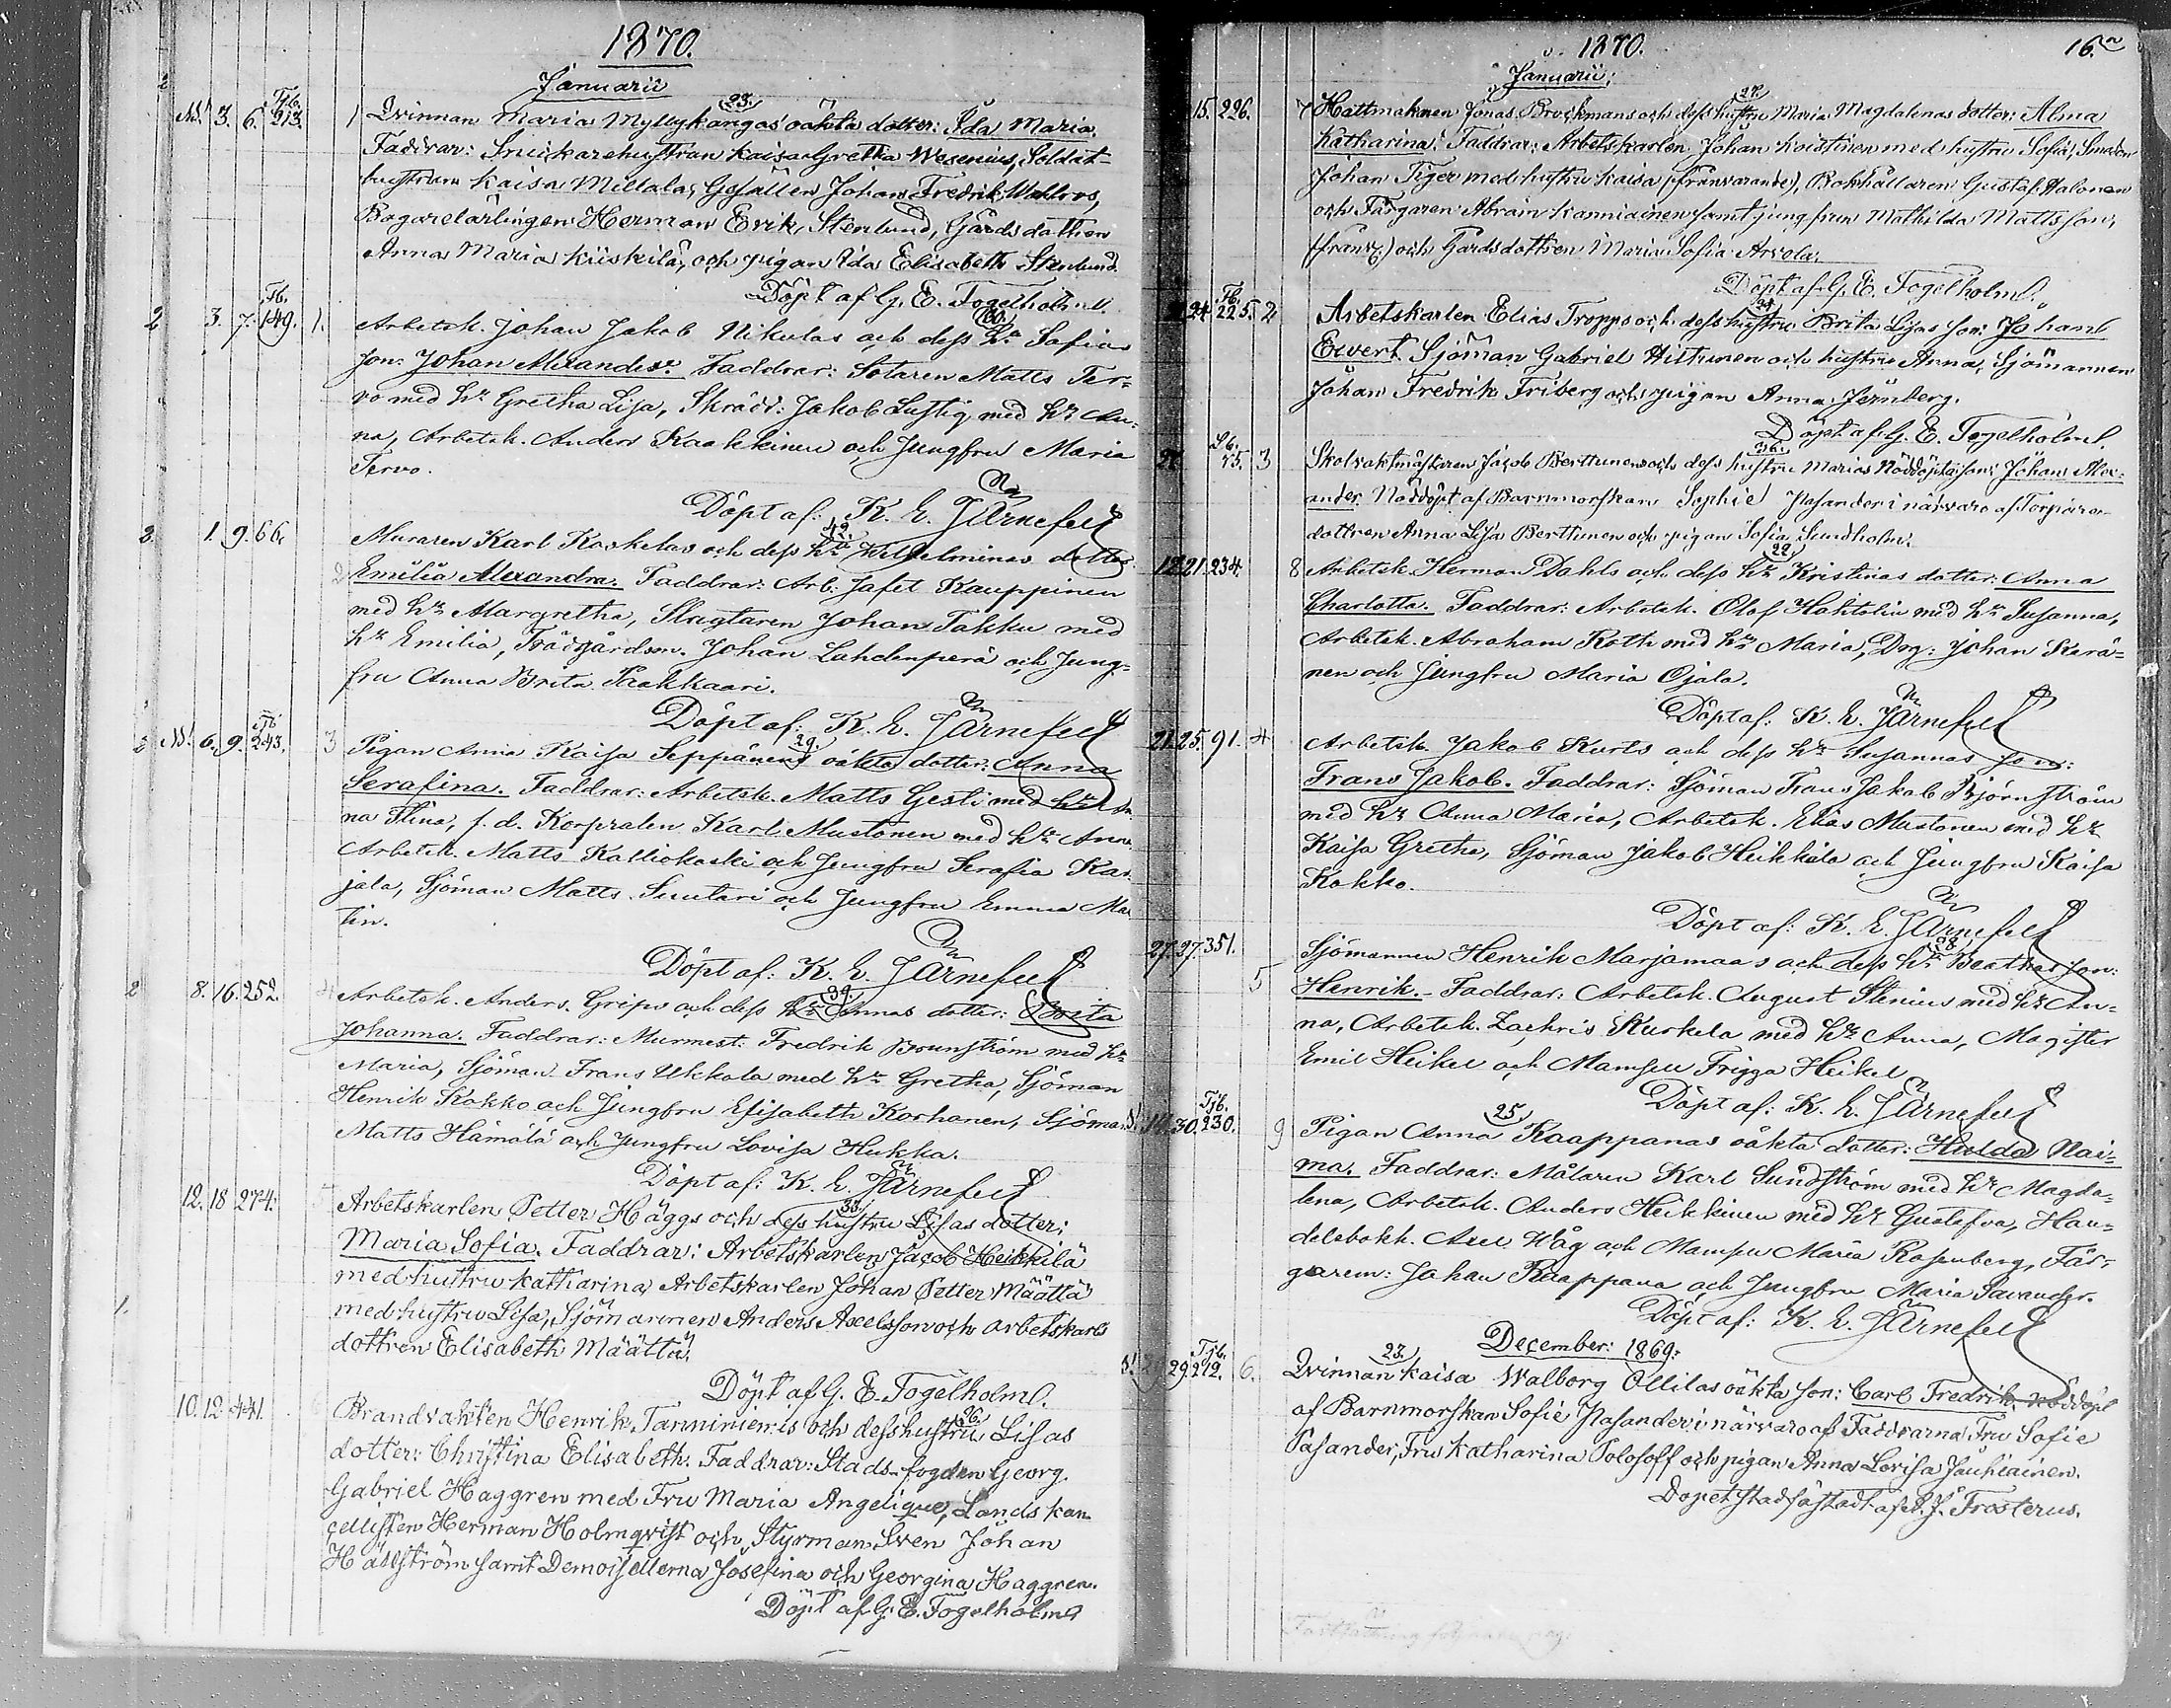 1870.
Januarii
Ns. 3. 6. Tjb. 213. 1 Qvinnan Maria Myllykangas' oäkta dotter: Ida Maria. 23.
Faddrar: Snickarehustrun Kaisa Gretha Wesenius, Soldat-
hustrun Kaisa Mellala, Gesällen Johan Fredrik Wahlroos,
Bagarelärlingen Herman Erik Stenlund, Gårdsdottren
Anna Maria Kiiskilä, och pigan Ida Elisabeth Stenlund.
Döpt af G. E. Fogelholm.
2 3. 7. Fb. 149. 1. Arbetsk. Johan Jakob Nikulas och dess hu Sofias
son: Johan Alexander. Faddrar: Sotaren Matts Ter-
vo med hu Gretha Lisa, Skrädd: Jakob Lustig med hu An-
na, Arbetsk. Anders Kaakkinen och Jungfru Maria
Tervo.
Döpt af: K. E. Järnefelt
2. 1. 9. 66. Muraren Karl Koskelas och dess hu Wilhelminas dotter 42.
2 Emilia Alexandra. Faddrar: Arb: Jafet Kauppinen
med hu Margretha, Slagtaren Johan Takku med
hu Emilia, Trädgårdsm. Johan Lahdenperä och Jung-
fru Anna Brita Paakkaari.
Döpt af: K. E. Järnefelt
Ns. 6. 9. Tb. 243. 3 Pigan Anna Kaisa Seppänens oäkta dotter: Anna 29.
Serafina. Faddrar: Arbetsk. Matts Gesti med hu An
na Stina, f. d. Korpralen Karl Mustonen med hu Anna
Arbetsk. Matts Kalliokoski och Jungfru Serafia Kar
jala, Sjöman Matts Suutari och Jungfru Emma Ma
lin.
Döpt af: K. E. Järnefelt
2 8. 16. 252. 4 Arbetsk. Anders Grips och dess hu Annas dotter: Brita 39.
Johanna. Faddrar: Murmest: Fredrik Brunström med hu
Maria, Sjöman Frans Ukkola med hu Gretha, Sjöman
Henrik Kokko och Jungfru Elisabeth Korhonen, Sjöman
Matts Hämälä och Jungfru Lovisa Hukka.
Döpt af: K. E. Järnefelt
12. 18 274. 5 Arbetskarlen Petter Häggs och dess hustru Lisas dotter: 38.
Maria Sofia. Faddrar: Arbetskarlen Jacob Heikkilä
med hustru Katharina, Arbetskarlen Johan Petter Määttä
1. med hustru Lisa, Sjömannen Anders Axelsson och arbetskarls
dottren Elisabeth Määttä.
Döpt af G. E. Fogelholm.
10. 12 441. 6 Brandvakten Henrik Tanninens och dess hustru Lisas 26.
dotter: Christina Elisabeth. Faddrar: Stads-fogden Georg
Gabriel Haggren med Fru Maria Angelique, Lands kan
cellisten Herman Holmqvist och Styrman Sven Johan
Hällström samt Demoisellerna Josefina och Georgina Haggren.
Döpt af G. E. Fogelholm
1870. 16.
Januarii;
15. 226. 7 Hattmakaren Jonas Brockmans och dess hustru Maria Magdalenas dotter: Alma 27.
Katharina. Faddrar: Arbetskarlen Johan Koistinen med hustru Sofia, Smeden
Johan Tiger med hustru Kaisa (frånvarande), Bokhållaren Gustaf Halonen
och Färgaren Abram Kanniainen samt jungfrun Mathilda Mattsson,
(frånv:) och Gårdsdottren Maria Sofia Arvola.
Döpt af G. E. Fogelholm.
24 Fb. 225. 2 Arbetskarlen Elias Tropps och dess hustru Brita Lisas son: Johan 24.
Evert. Sjöman Gabriel Hiltunen och hustru Anna, Sjömannen
Johan Fredrik Friberg och pigan Anna Jernberg.
Döpt af G. E. Fogelholm.
15. 3 Skolvaktmästaren Jacob Berttunens och dess hustru Marias Nöddöpta son: Johan Alex- 36.
ander. Nöddöpt af Barnmorskan Sophie Pasander i närvaro af Torpare-
dottren Anna Lisa Berttunen och pigan Sofia Sundholm.
12. 21. 234. 8 Arbetsk. Herman Dahls och dess hu Kristinas dotter: Anna 22.
Charlotta. Faddrar: Arbetsk. Olof Hahtolin med hu Susanna,
Arbetsk. Abraham Koth med hu Maria, Drg: Johan Kerä-
nen och Jungfru Maria Ojala.
Döpt af: K. E. Järnefelt
21. 25. 91. 4 Arbetsk. Jakob Kurts och dess hu Susannas son:
Frans Jakob. Faddrar: Sjöman Frans Jakob Björnström
med hu Anna Maria, Arbetsk. Elias Mustonen med hu
Kaisa Gretha, Sjöman Jakob Heikkilä och Jungfru Kaisa
Kokko.
Döpt af: K. E. Järnefelt
27. 27. 351. Sjömannen Henrik Marjamaas och dess hu Beathas son: 28.
5 Henrik. Faddrar: Arbetsk. August Stenius med hu An-
na, Arbetsk. Zachris Kurkela med hu Anna, Magister
Emil Heikel och Mamsell Frigga Heikel
Döpt af: K. E. Järnefelt
30. Tjb. 230. 9 Pigan Anna Kaappanas oäkta dotter: Hulda Nai- 25
ma. Faddrar: Målaren Karl Sundström med hu Magda-
lena, Arbetsk. Anders Heikkinen med hu Gustafva, Han-
delsbokh. Axel Wåg och Mamsell Maria Rosenberg, Fär-
garen: Johan Kaappana och Jungfru Maria Savander.
Döpt af: K. E. Järnefelt
December: 1869:
29. Tjb. 212. 6. Qvinnan Kaisa Walborg Ollilas oäkta son: Carl Fredrik, nöddöpt 23.
af Barnmorskan Sofie Pasander i närvaro af Faddrarna Fru Sofie
Pasander, Fru Katharina Solosoff och pigan Anna Lovisa Jauhiainen.
Dopet stadfästadt af J. Frosterus.